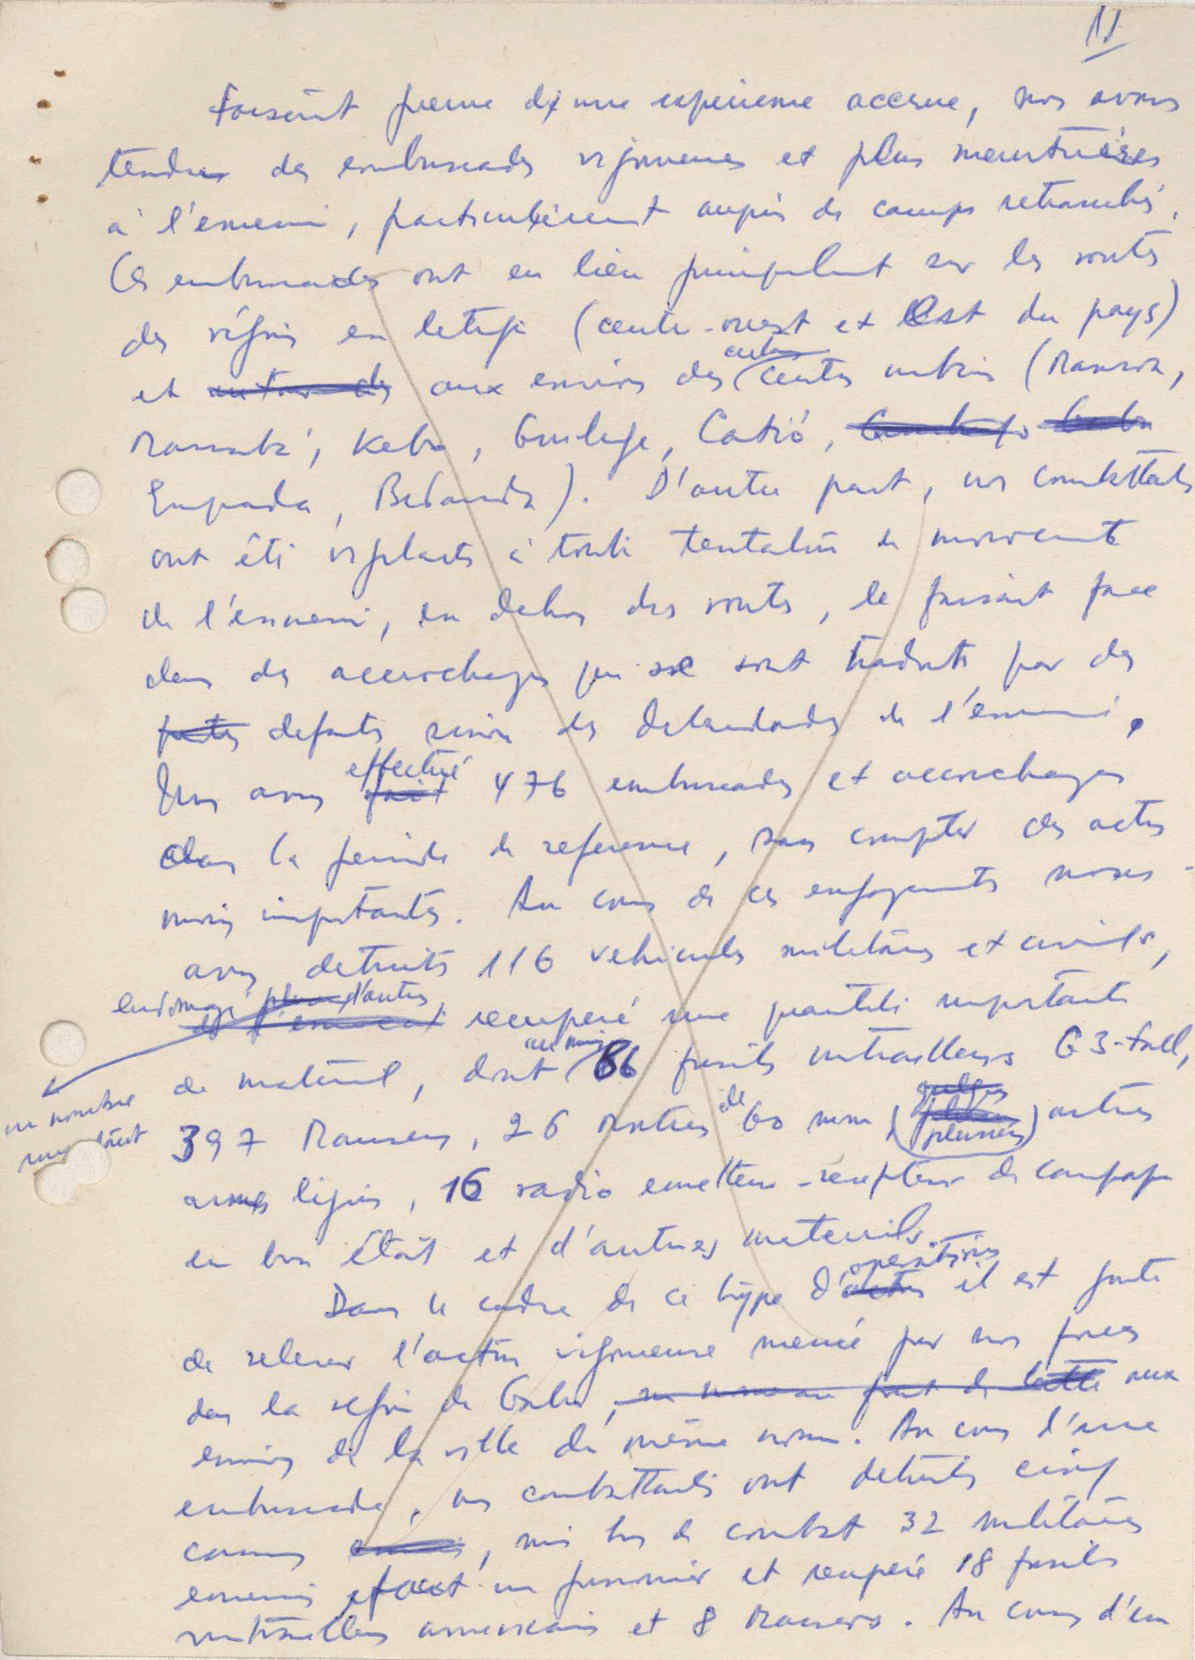 11
Faisant preuve d'une experience accrue, nos avons
tendu des embuscades vigoureuses et plus meurtrières
à l'ennemi, particulièrement auprès de camps retranchés.
Ces embuscades ont eu lieu principalement sur les routes
des régions en (centre-ouest et Est du pays)
et autour des aux environs des autres centres urbains (Mansoa,
Mansabá, Kebo, Guilege, Catió,
Empada, Bedanda). D'autre part, nos combattants
ont été vigilants à toute tentative de mouvements
de l'ennemi, en dehors des routes, le faisant face
dans des accrochages qui se sont traduits par des
fortes defaites, sinon des debandades de l'ennemi.
Nous avons fait effectué 476 embuscades et accrochages
dans la periode de reference, sans compter des actes
moins importantes. Au cours de ces engagements nous
avons detruits 116 vehicules militaires et civils,
endomagé plus d'autres, recuperé une quantité importante
un nombre important
de materiel, dont au moins 86 fusils mitrailleurs G3-Fall,
397 Mausers, 26 Mortiers de 60 mm, (plusieurs) autres
armes légères, 16 radio emetteurs-recepteurs de campagne
en bon état et d'autres materiels.
Dans le cadre de ce type d'actes operations il est juste
de relever l'action vigoureuse menée par nos forces
dans la region de Gabu, un nouveau front de lutte aux
environs de la ville du même nom. Au cours d'une
embuscade, nos combattants ont detruits cinq
camions, mis hors de combat 32 militaires
ennemis, fait un prisonnier et recuperé 18 fusils
mitrailleurs americains et 8 Mausers. Au cours d'un